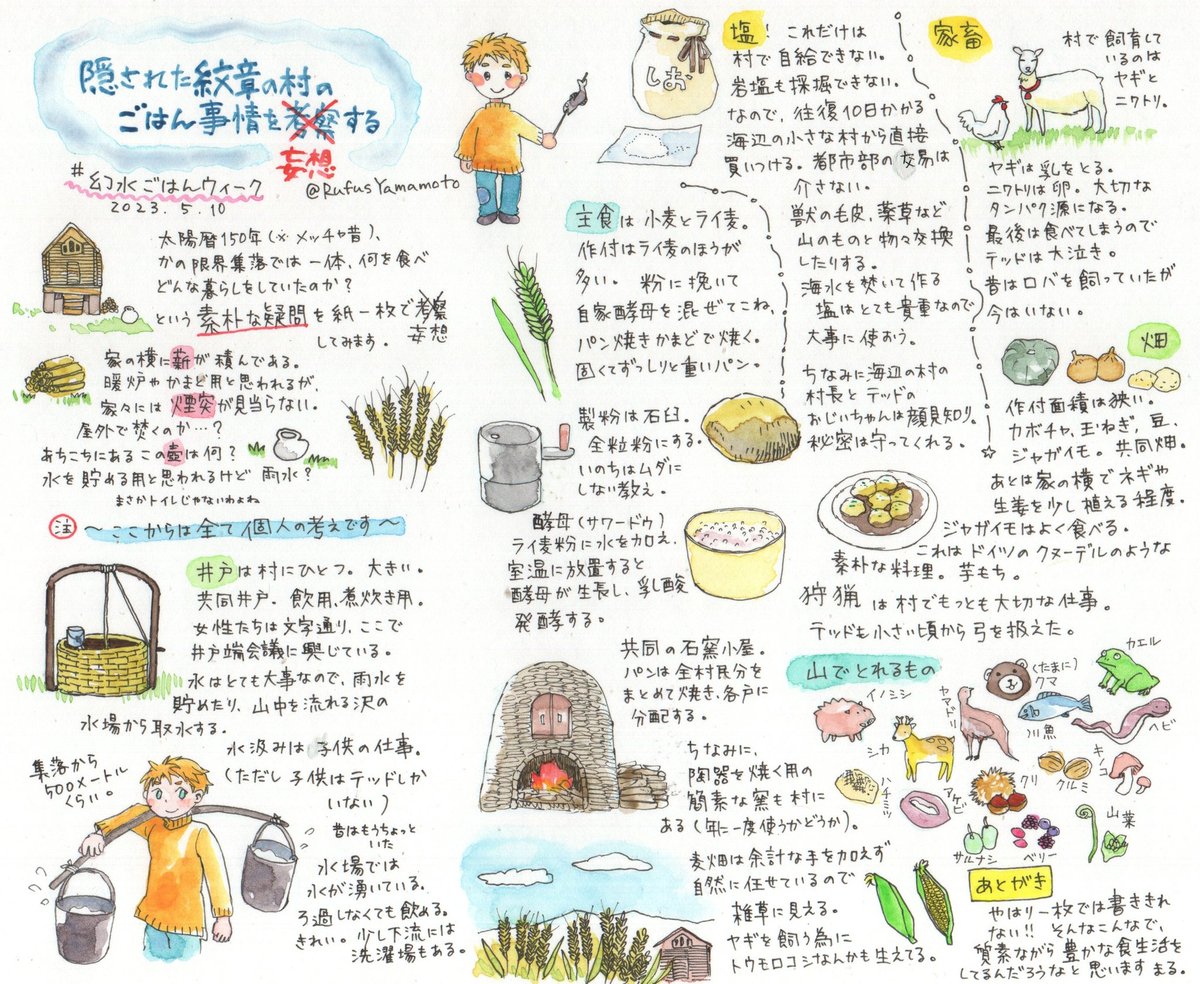 隠された紋章の村の
ごはん事情を考察する
妄想
#幻水ごはんウィーク
2023.5.10
@RufusYamamoto
太陽暦150年(※メッチャ昔)、
かの限界集落では一体、何を食べ
どんな暮らしをしていたのか?
という素朴な疑問を紙一枚で考察
妄想
してみます。
家の横に薪が積んである。
暖炉やかまど用と思われるが、
家々には煙突が見当らない。
屋外で焚くのか…?
あちこちにあるこの壺は何?
水を貯める用と思われるけど雨水?
まさかトイレじゃないわよね
注 〜ここからは全て個人の考えです〜
井戸は村にひとつ。大きい。
共同井戸。飲用、煮炊き用。
女性たちは文字通り、ここで
井戸端会議に興じている。
水はとても大事なので、雨水を
貯めたり、山中を流れる沢の
水場から取水する。
水汲みは子供の仕事。
(ただし子供はテッドしか
いない)
昔はもうちょっと
いた
集落から
500メートル
くらい。
水場では
水が湧いている。
ろ過しなくても飲める。
きれい。少し下流には
洗濯場もある。
主食は小麦とライ麦。
作付はライ麦のほうが
多い。粉に挽いて
自家酵母を混ぜてこね、
パン焼きかまどで焼く。
固くてずっしりと重いパン。
製粉は石臼。
全粒粉にする。
いのちはムダに
しない教え。
酵母(サワードゥ)
ライ麦粉に水を加え、
室温に放置すると
酵母が生長し、乳酸
発酵する。
共同の石窯小屋。
パンは全村民分を
まとめて焼き、各戸に
分配する。
ちなみに、
陶器を焼く用の
簡素な窯も村に
ある(年に一度使うかどうか)。
麦畑は余計な手を加えず
自然に任せているので
雑草に見える。
ヤギを飼う為に
トウモロコシなんかも生えてる。
しお
塩!これだけは
村で自給できない。
岩塩も採掘できない。
なので、往復10日かかる
海辺の小さな村から直接
買いつける。都市部の交易は
介さない。
獣の毛皮、薬草など
山のものと物々交換
したりする。
海水を焚いて作る
塩はとても貴重なので
大事に使おう。
ちなみに海辺の村の
村長とテッドの
おじいちゃんは顔見知り。
秘密は守ってくれる。
家畜
村で飼育して
いるのは
ヤギと
ニワトリ。
ヤギは乳をとる。
ニワトリは卵。大切な
タンパク源になる。
最後は食べてしまうので
テッドは大泣き。
昔はロバを飼っていたが
今はいない。
畑
作付面積は狭い。
カボチャ、玉ねぎ、豆、
☆ジャガイモ。共同畑。
あとは家の横でネギや
生姜を少し植える程度。
ジャガイモはよく食べる。
これはドイツのクヌーデルのような
素朴な料理。芋もち。
狩猟は村でもっとも大切な仕事。
テッドも小さい頃から弓を扱えた。
山でとれるもの
イノシシ
シカ
ヤマドリ
(たまに)
クマ
カエル
川魚
ヘビ
ハチミツ
アケビ
クリ
クルミ
キノコ
サルナシ
ベリー
山菜
あとがき
やはり一枚では書ききれ
ない!!そんなこんなで、
質素ながら豊かな食生活を
してるんだろうなと思います まる。